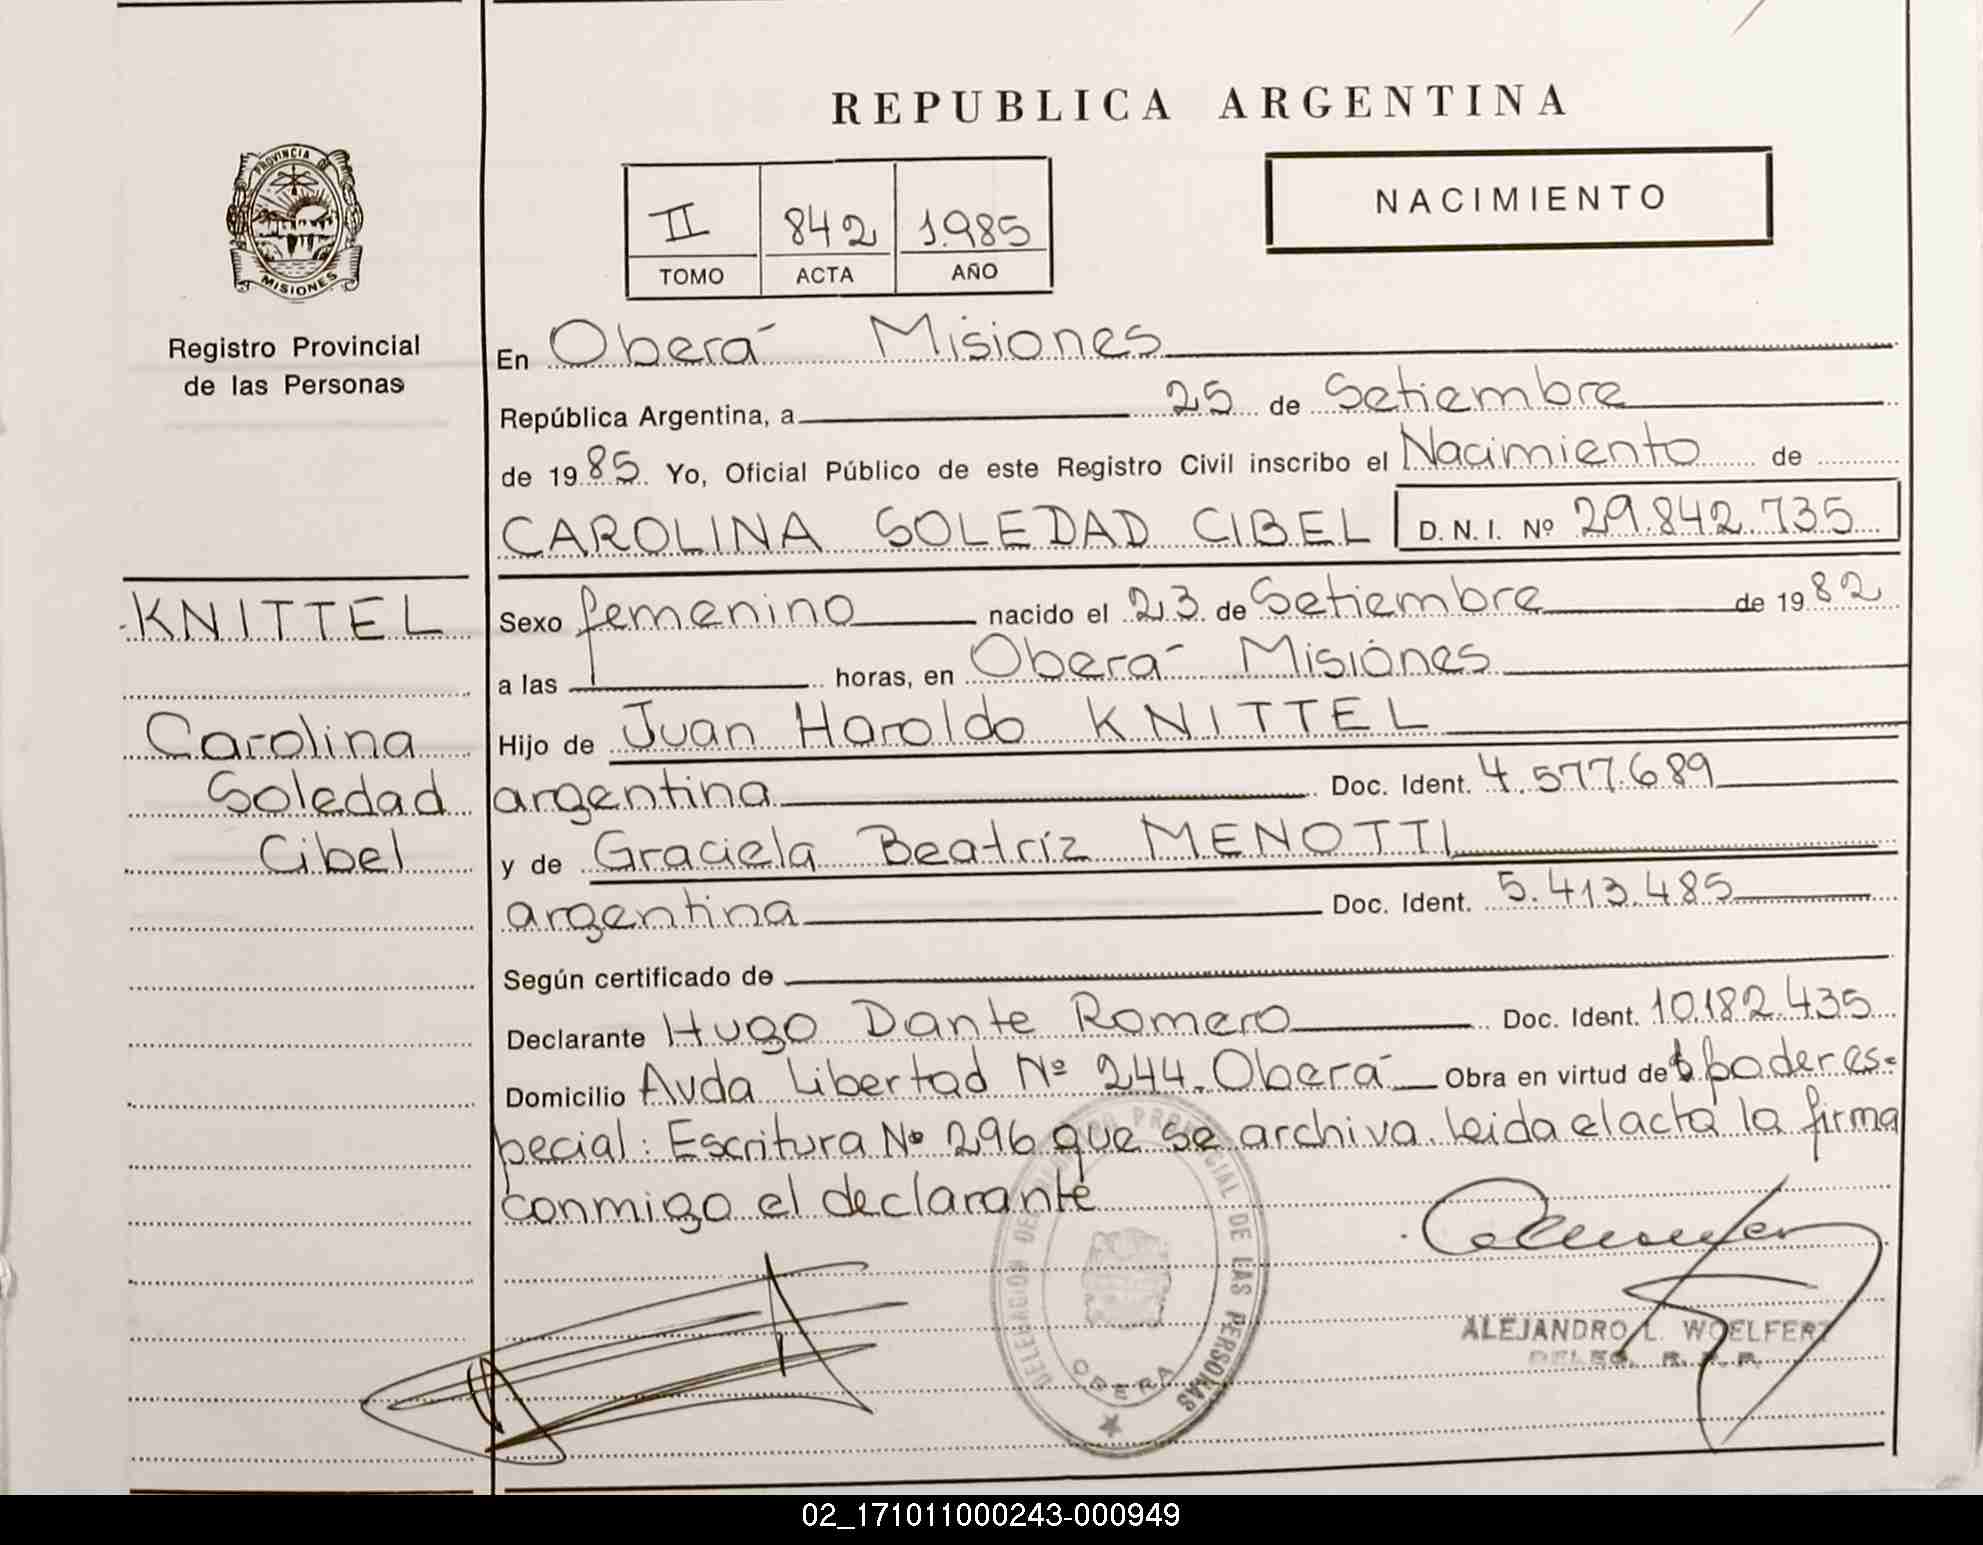 REPUBLICA ARGENTINA
PROVINCIA DE
MISIONES
Registro Provincial
de las Personas
II 842 1985
TOMO ACTA AÑO
NACIMIENTO
En Oberá Misiones
República Argentina, a 25 de Setiembre
de 1985. Yo, Oficial Público de este Registro Civil inscribo el Nacimiento de
CAROLINA SOLEDAD CIBEL D. N. I. Nº 29.842.735
KNITTEL
Carolina
Soledad
Cibel
Sexo femenino nacido el 23 de Setiembre de 1982
a las horas, en Oberá Misiones
Hijo de Juan Haroldo KNITTEL
argentina Doc. Ident. 4.577.689
y de Graciela Beatríz MENOTTI
argentina Doc. Ident. 5.413.485
Según certificado de
Declarante Hugo Dante Romero Doc. Ident. 10.182.435
Domicilio Avda Libertad Nº 244. Oberá Obra en virtud de poder es-
pecial: Escritura Nº 296 que se archiva. leida el acta la firma
conmigo el declarante
DELEGACION DEL REGISTRO PROVINCIAL DE LAS PERSONAS
OBERA
ALEJANDRO L. WOELFERT
DELEG. R. P. P.
02_171011000243-000949